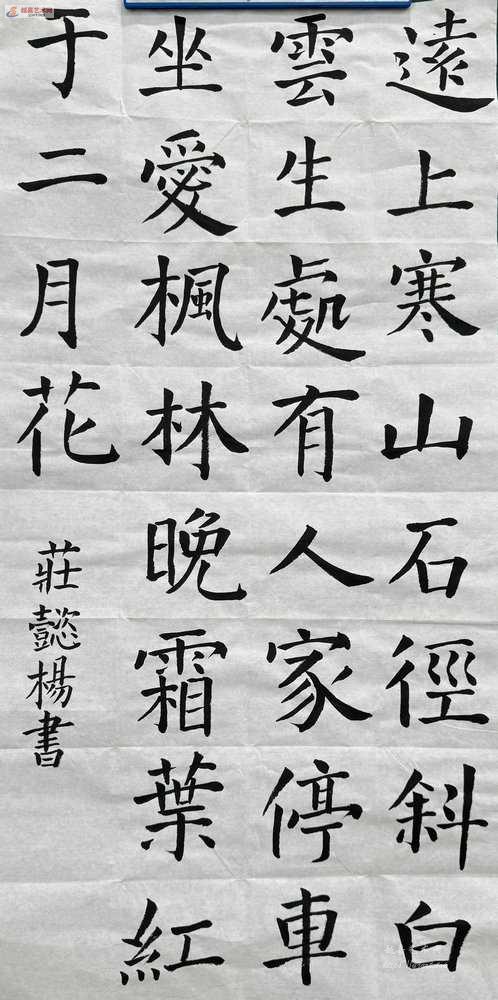 遠上寒山石徑斜白
雲生處有人家停車
坐愛楓林晚霜葉紅
于二月花
莊懿楊書